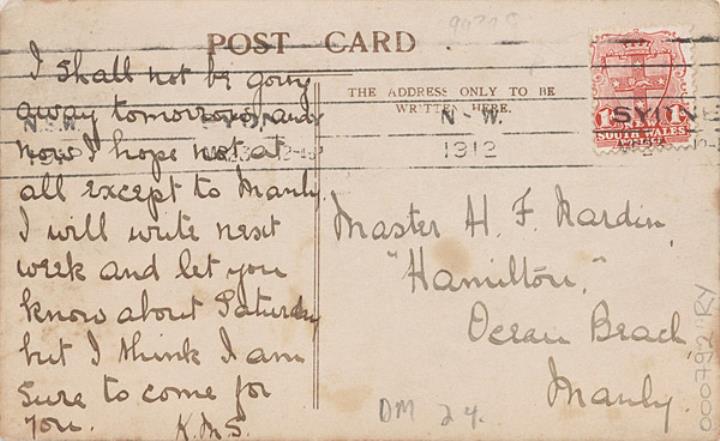 POST CARD
I shall not be going
away tomorrow, and
now I hope not at
all except to Manly.
I will write next
week and let you
know about Saturday
but I think I am
sure to come for
you. K.M.S.
THE ADDRESS ONLY TO BE
WRITTEN HERE.
N.S.W.
N - W.
1912
SYDNE
1d 1d
SOUTH WALES
Master H. F. Nardin,
"Hamilton,"
Ocean Beach,
Manly.
DM 24.
000792"RY